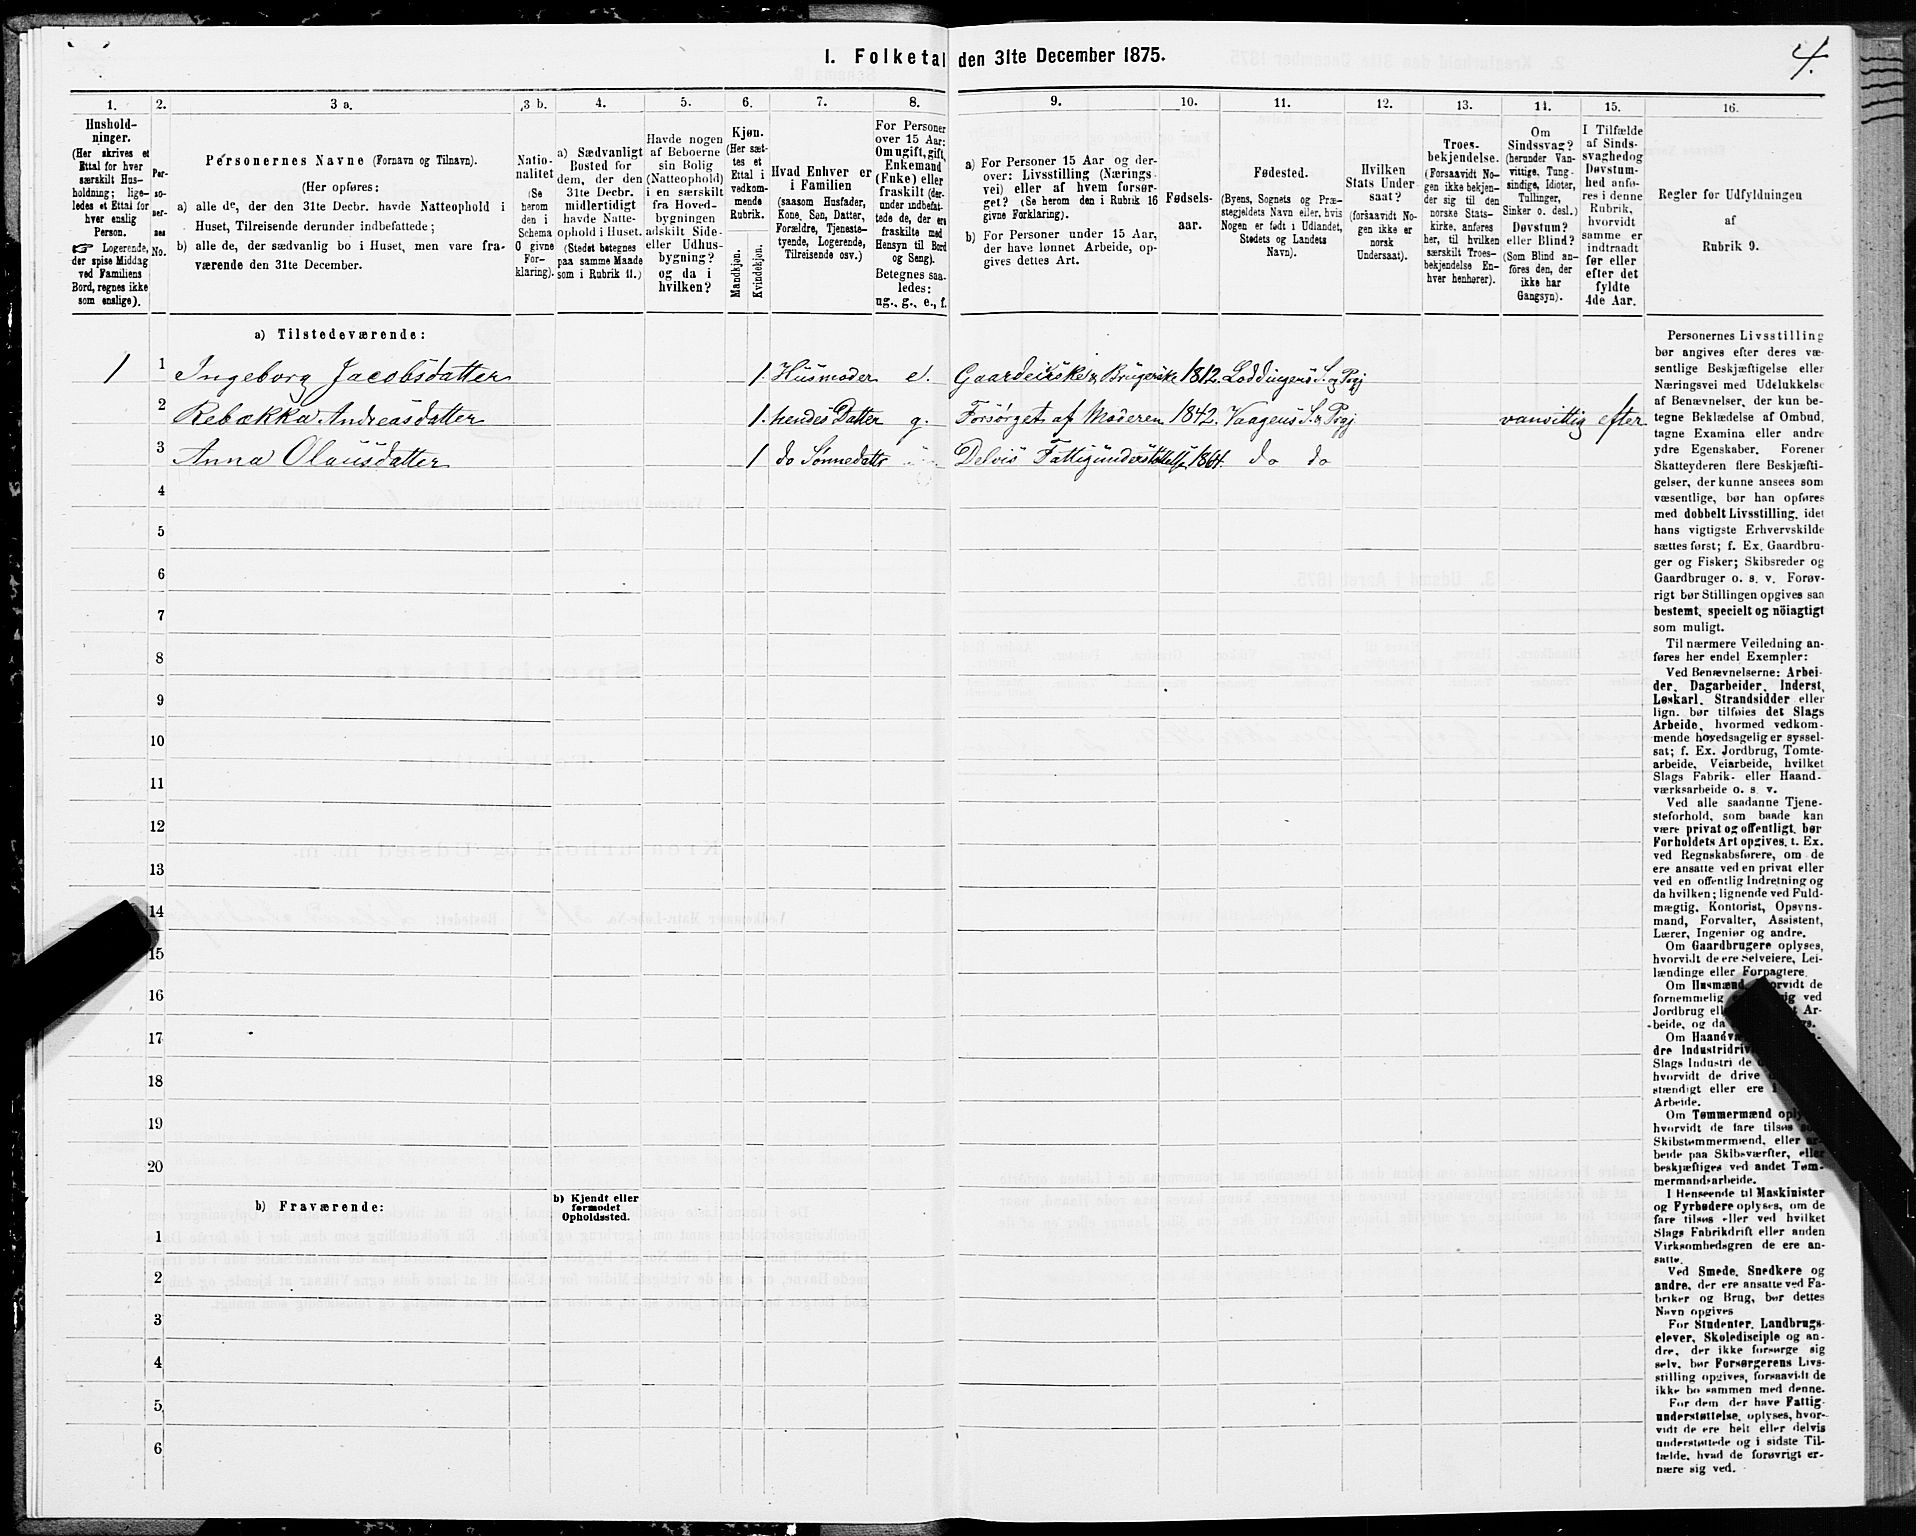 4.
I. Folketal den 31te December 1875.
1. 2. 3 a. 3 b. 4. 5. 6. 7. 8. 9. 10. 11. 12. 13. 14. 15. 16.
Hushold-
ninger.
(Her skrives et
Ettal for hver
særskilt Hus-
holdning; lige-
ledes et Ettal for
hver enslig
Person.
☞ Logerende,
der spise Middag
ved Familiens
Bord, regnes ikke
som enslige).
Per-
so-
ner-
nes
No.
Personernes Navne (Fornavn og Tilnavn).
(Her opføres:
a) alle de, der den 31te Decbr. havde Natteophold i
Huset, Tilreisende derunder indbefattede;
b) alle de, der sædvanlig bo i Huset, men vare fra-
værende den 31te December.
Natio-
nalitet
(Se
herom
den i
Schema
O givne
For-
klaring).
a) Sædvanligt
Bosted for
dem, der den
31te Decbr.
midlertidigt
havde Natte-
ophold i Huset.
(Stedet betegnes
paa samme Maade
som i Rubrik 11.)
Havde nogen
af Beboerne
sin Bolig
(Natteophold)
i en særskilt
fra Hoved-
bygningen
adskilt Side-
eller Udhus-
bygning?
og da i
hvilken?
Kjøn.
(Her sæt-
tes et
Ettal i
vedkom-
mende
Rubrik.
Mandkjøn.
Kvindekjøn.
Hvad Enhver er
i Familien
(saasom Husfader,
Kone, Søn, Datter,
Forældre, Tjeneste-
tyende, Logerende,
Tilreisende osv.)
For Personer
over 15 Aar:
Om ugift, gift,
Enkemand
(Enke) eller
fraskilt (der-
under indbefat-
tede de, der ere
fraskilte med
Hensyn til Bord
og Seng).
Betegnes saa-
ledes:
ug., g., e., f.
a) For Personer 15 Aar og der-
over: Livsstilling (Nærings-
vei) eller af hvem forsør-
get? (Se herom den i Rubrik 16
givne Forklaring).
b) For Personer under 15 Aar,
der have lønnet Arbeide, op-
gives dettes Art.
Fødsels-
aar.
Fødested.
(Byens, Sognets og Præ-
stegjeldets Navn eller, hvis
Nogen er født i Udlandet,
Stedets og Landets
Navn).
Hvilken
Stats Under-
saat?
(forsaavidt No-
gen ikke er
norsk
Undersaat).
Troes-
bekjendelse.
(Forsaavidt No-
gen ikke bekjen-
der sig til den
norske Stats-
kirke, anføres
her, til hvilken
særskilt Troes-
bekjendelse En-
hver henhører).
Om
Sindssvag?
(herunder Van-
vittige, Tung-
sindige, Idioter,
Tullinger,
Sinker o. desl.)
Døvstum?
eller Blind?
(Som Blind an-
føres den, der
ikke har
Gangsyn).
I Tilfælde
af Sinds-
svaghed og
Døvstum-
hed anfø-
res i denne
Rubrik,
hvorvidt
samme er
indtraadt
før eller
efter det
fyldte
4de Aar.
Regler for Udfyldningen
af
Rubrik 9.
a) Tilstedeværende:
1 1 Ingeborg Jacobsdatter 1. Husmoder e. Gaardeierske &amp; Brugerske 1812. Loddingens S. og Pgj
2 Rebækka Andreasdatter 1. hendes Datter g. Forsørget af Moderen 1842. Vaagens S. &amp; Pgj vanvittig efter
3 Anna Olausdatter 1 do Sønnedattr Delvis Fattigunderstøttelse 1864. do do
4
5
6
7
8
9
10
11
12
13
14
15
16
17
18
19
20
b) Fraværende:
b) Kjendt eller
formodet
Opholdssted.
1
2
3
4
5
6
Personernes Livsstilling
bør angives efter deres væ-
sentlige Beskjæftigelse eller
Næringsvei med Udelukkelse
af Benævnelser, der kun be-
tegne Beklædelse af Ombud,
tagne Examina eller andre
ydre Egenskaber. Forener
Skatteyderen flere Beskjæfti-
gelser, der kunne ansees som
væsentlige, bør han opføres
med dobbelt Livsstilling, idet
hans vigtigste Erhvervskilde
sættes først; f. Ex. Gaardbru-
ger og Fisker; Skibsreder og
Gaardbruger o. s. v. Forøv-
rigt bør Stillingen opgives saa
bestemt, specielt og nöiagtigt
som muligt.
Til nærmere Veiledning an-
føres her endel Exempler:
Ved Benævnelserne: Arbei-
der, Dagarbeider, Inderst,
Løskarl, Strandsidder eller
lign. bør tilføies det Slags
Arbeide, hvormed vedkom-
mende hovedsagelig er syssel-
sat; f. Ex. Jordbrug, Tomte-
arbeide, Veiarbeide, hvilket
Slags Fabrik- eller Haand-
værksarbeide o. s. v.
Ved alle saadanne Tjene-
steforhold, som baade kan
være privat og offentligt, bør
Forholdets Art opgives, f. Ex.
ved Regnskabsførere, om de
ere ansatte ved en privat eller
ved en offentlig Indretning og
da hvilken; lignende ved Fuld-
mægtig, Kontorist, Opsyns-
mand, Forvalter, Assistent,
Lærer, Ingeniør og andre.
Om Gaardbrugere oplyses,
hvorvidt de ere Selveiere, Lei-
lændinge eller Forpagtere.
Om Husmænd, hvorvidt de
fornemmelig ved
Jordbrug Ar-
beide, og da
Om
dre Industridri
Slags Industri de
hvorvidt de drive
stændigt eller ere i
Arbeide.
Om Tømmermænd oplyses
hvorvidt de fare tilsøs som
Skibstømmermænd, eller ar-
beide paa Skibsværfter, eller
beskjæftiges ved andet Tøm-
mermandsarbeide.
I Henseende til Maskinister
og Fyrbødere oplyses, om de
fare tilsøs eller ved hvilket
Slags Fabrikdrift eller anden
Virksomhedsgren de ere an-
satte.
Ved Smede, Snedkere og
andre, der ere ansatte ved Fa-
briker og Brug, bør dettes
Navn opgives
For Studenter, Landbrugs-
elever, Skoledisciple og an-
dre, der ikke forsørge sig
selv, bør Forsørgerens Livs-
stilling opgives, forsaavidt de
ikke bo sammen med denne.
For dem der have Fattig-
understøttelse, oplyses, hvor-
vidt de ere helt eller delvis
understøttede og i sidste Til-
fælde, hvad de forøvrigt er-
nære sig ved.